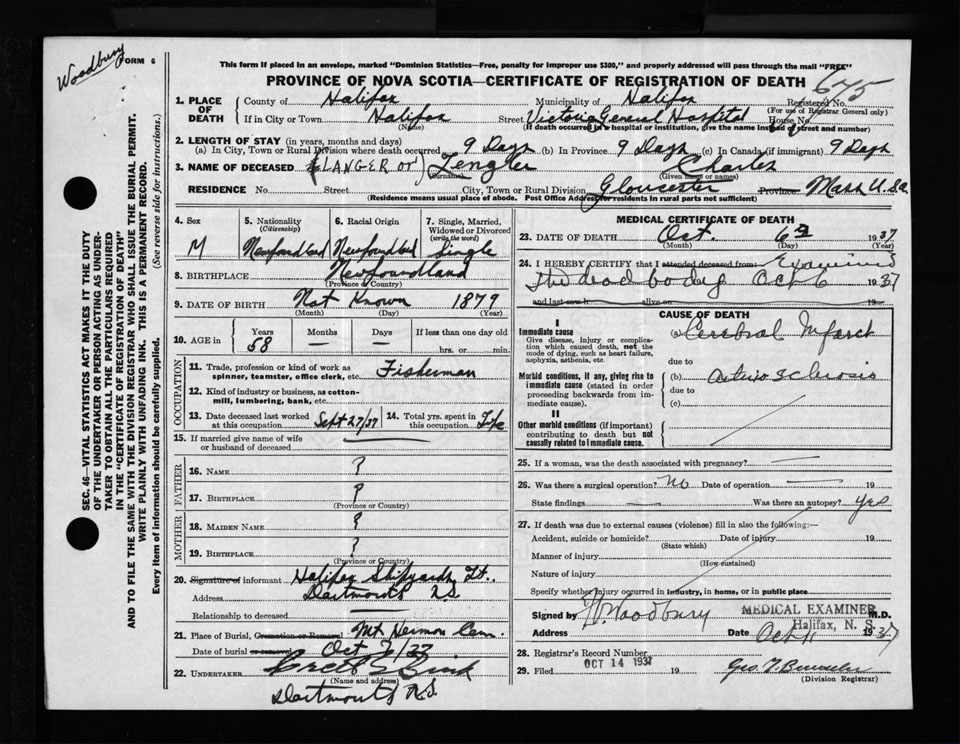 Woodbury
FORM 6
This form if placed in an envelope, marked "Dominion Statistics—Free, penalty for improper use $300," and properly addressed will pass through the mail "FREE"
PROVINCE OF NOVA SCOTIA—CERTIFICATE OF REGISTRATION OF DEATH
675
1. PLACE OF DEATH
County of Halifax Municipality of Halifax Registered No.
(For use of Registrar General only)
If in City or Town Halifax Street Victoria General Hospital House No.
(Name) (If death occurred in a hospital or institution, give the name instead of street and number)
2. LENGTH OF STAY (in years, months and days)
(a) In City, Town or Rural Division where death occurred 9 Days (b) In Province 9 Days (c) In Canada (if immigrant) 9 Days
3. NAME OF DECEASED (LANGER or) Zengler Charles
(Surname) (Given name or names)
RESIDENCE No. Street City, Town or Rural Division Gloucester Province Mass U.S.a
(Residence means usual place of abode. Post Office Address for residents in rural parts not sufficient)
4. Sex
M
5. Nationality
(Citizenship)
Newfoundland
6. Racial Origin
Newfoundland
7. Single, Married, Widowed or Divorced
(write the word)
Single
8. BIRTHPLACE Newfoundland
(Province or Country)
9. DATE OF BIRTH Not Known 1879
(Month) (Day) (Year)
10. AGE in
Years
58
Months
—
Days
—
If less than one day old
hrs. or min.
OCCUPATION
11. Trade, profession or kind of work as spinner, teamster, office clerk, etc. Fisherman
12. Kind of industry or business, as cotton-mill, lumbering, bank, etc.
13. Date deceased last worked at this occupation Sept 27/37
14. Total yrs. spent in this occupation Life
15. If married give name of wife or husband of deceased
FATHER
16. NAME ?
17. BIRTHPLACE ?
(Province or Country)
MOTHER
18. MAIDEN NAME ?
19. BIRTHPLACE ?
(Province or Country)
20. Signature of informant Halifax Shipyards Lt.
Address Dartmouth N.S.
Relationship to deceased —
21. Place of Burial, Cremation or Removal Mt Hermon Cem.
Date of burial or removal Oct 7/37
22. UNDERTAKER
(Name and address)
Dartmouth N.S.
MEDICAL CERTIFICATE OF DEATH
23. DATE OF DEATH Oct. 6th 1937
(Month) (Day) (Year)
24. I HEREBY CERTIFY that I attended deceased from Examined
The dead body Oct 6 1937
and last saw h alive on 19
CAUSE OF DEATH
I
Immediate cause
Give disease, injury or complication which caused death, not the mode of dying, such as heart failure, asphyxia, asthenia, etc.
(a) Cerebral Infarct
due to
Morbid conditions, if any, giving rise to immediate cause (stated in order proceeding backwards from immediate cause).
(b) Arterio sclerosis
due to
(c)
II
Other morbid conditions (if important) contributing to death but not causally related to immediate cause.
25. If a woman, was the death associated with pregnancy? —
26. Was there a surgical operation? No Date of operation — 19
State findings — Was there an autopsy? Yes
27. If death was due to external causes (violence) fill in also the following:—
Accident, suicide or homicide? Date of injury 19
(State which)
Manner of injury
(How sustained)
Nature of injury
Specify whether injury occurred in industry, in home, or in public place
Signed by Woodbury M.D.
MEDICAL EXAMINER
Halifax, N. S.
Address Date Oct 1937
28. Registrar's Record Number
29. Filed OCT 14 1937 19
(Division Registrar)
SEC. 46—VITAL STATISTICS ACT MAKES IT THE DUTY OF THE UNDERTAKER OR PERSON ACTING AS UNDERTAKER TO OBTAIN ALL THE PARTICULARS REQUIRED IN THE "CERTIFICATE OF REGISTRATION OF DEATH" AND TO FILE THE SAME WITH THE DIVISION REGISTRAR WHO SHALL ISSUE THE BURIAL PERMIT.
WRITE PLAINLY WITH UNFADING INK. THIS IS A PERMANENT RECORD.
Every item of information should be carefully supplied. (See reverse side for instructions.)